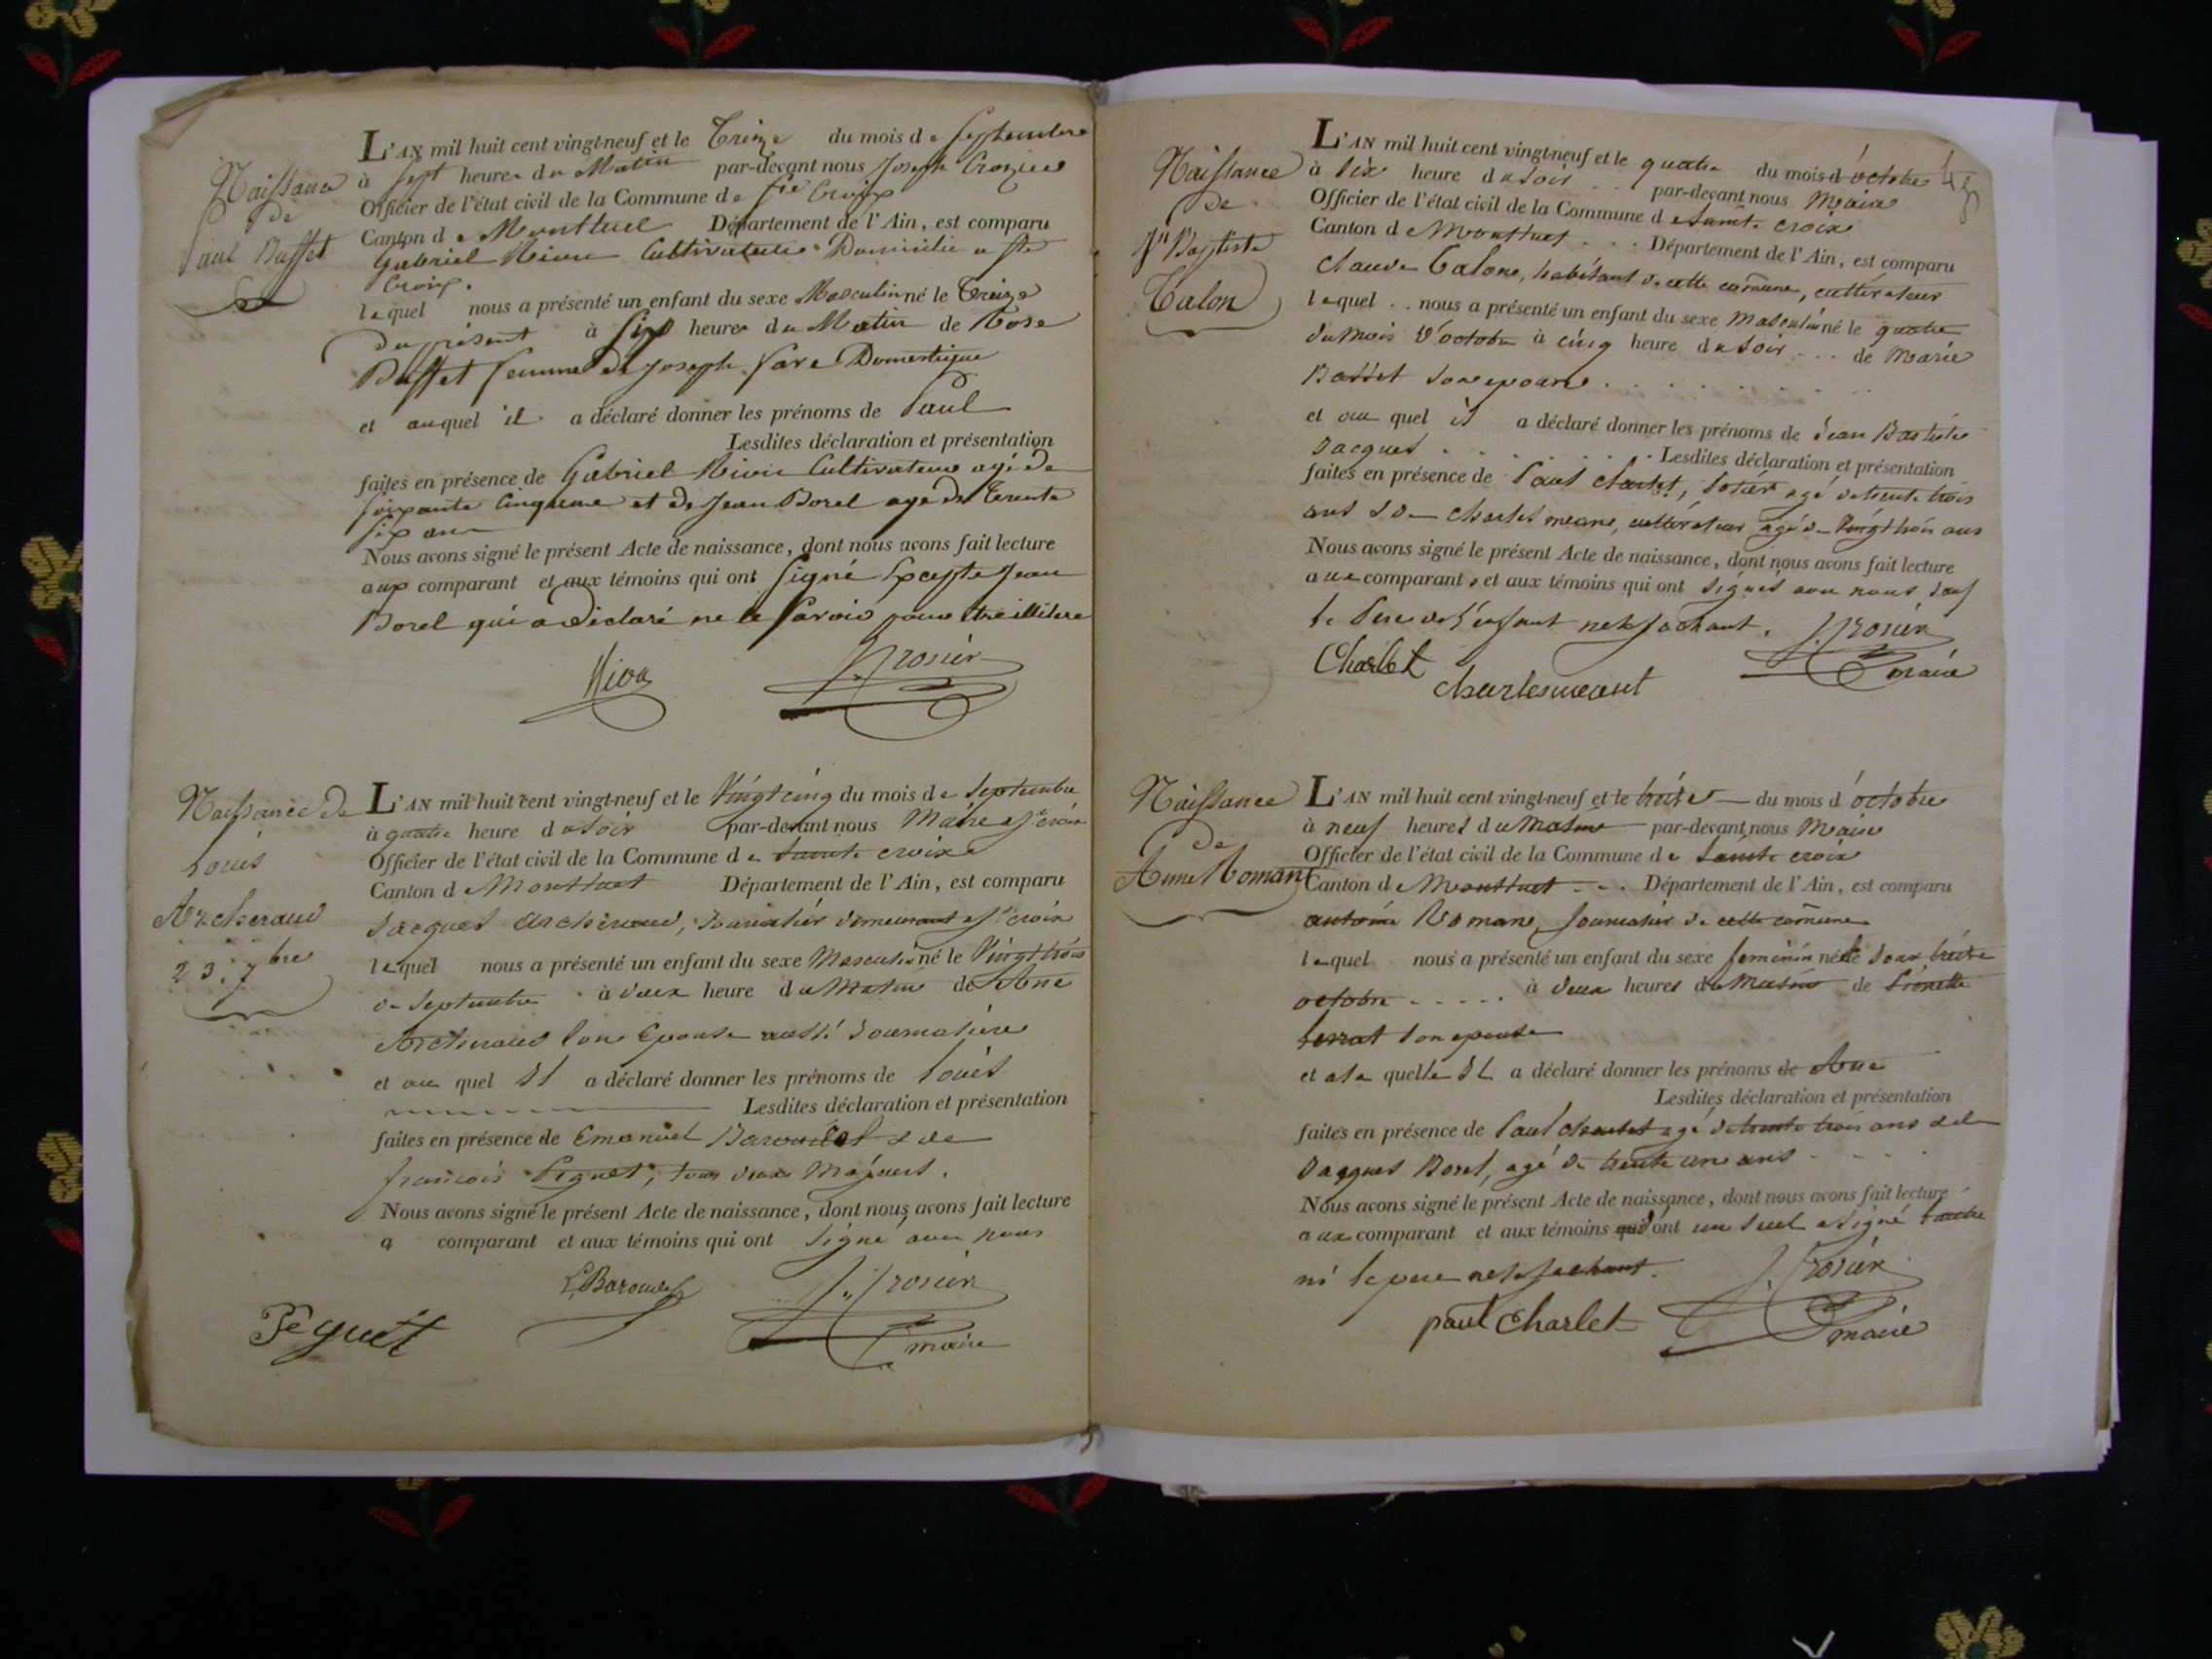 Naissance
de
Paul Buffet
L'AN mil huit cent vingt-neuf et le Treize du mois de Septembre
à Sept heures du Matin par-devant nous Joseph Crozier
Officier de l'état civil de la Commune de Ste Croix
Canton de Montluel Département de l'Ain, est comparu
Gabriel Cultivateur Domicilié a Ste
Croix.
lequel nous a présenté un enfant du sexe Masculin né le Treize
du présent à Six heures du Matin de Rose
Buffet femme de Joseph Domestique
et auquel il a déclaré donner les prénoms de Paul
Lesdites déclaration et présentation
faites en présence de Gabriel Cultivateur agé de
Soixante Cinq et de Jean Borel agé de Trente
Six ans
Nous avons signé le présent Acte de naissance, dont nous avons fait lecture
aux comparant et aux témoins qui ont Signé Excepté Jean
Borel qui a déclaré ne le Savoir pour être illitéré
Naissance de
Louis
Archeraud
23. 7bre
L'AN mil huit cent vingt-neuf et le Vingt cinq du mois de Septembre
à quatre heure du soir par-devant nous Maire Ste croix
Officier de l'état civil de la Commune de Sainte croix
Canton de Montluel Département de l'Ain, est comparu
Jacques Archeraud, Journalier demeurant a Ste croix
lequel nous a présenté un enfant du sexe Masculin né le Vingt trois
de Septembre à deux heure du Matin de Ane
Archeraud son Epouse aussi Journalière
et au quel Il a déclaré donner les prénoms de Louis
Lesdites déclaration et présentation
faites en présence de Emanuel & de
françois Péguet, tous deux Majeurs.
Nous avons signé le présent Acte de naissance, dont nous avons fait lecture
a comparant et aux témoins qui ont Signé avec nous
J. Crosier
Péguet
maire
Naissance
de
Jn Baptiste
Talon
L'AN mil huit cent vingt-neuf et le quatre du mois d'octobre
à Six heure du soir par-devant nous Maire
Officier de l'état civil de la Commune de Sainte croix
Canton de Montluel Département de l'Ain, est comparu
Claude Talon, habitant de cette comune, cultivateur
lequel nous a présenté un enfant du sexe Masculin né le quatre
du Mois d'octobre à cinq heure du soir de Marie
Basset son epouse
et au quel il a déclaré donner les prénoms de Jean Baptiste
Jacques Lesdites déclaration et présentation
faites en présence de Paul Charlet, agé de trente trois
ans & de Charles meane, cultivateur agé de Vingt trois ans
Nous avons signé le présent Acte de naissance, dont nous avons fait lecture
aux comparant, et aux témoins qui ont signés avec nous, Sauf
le Père de l'enfant ne le sachant.
J. Crosier
Charlet
maire
Naissance
de
Anne Romant
L'AN mil huit cent vingt-neuf et le treise du mois d'octobre
à neuf heures du Matin par-devant nous Maire
Officier de l'état civil de la Commune de Sainte croix
Canton de Montluel Département de l'Ain, est comparu
antoine Romans, Journalier de cette comune
lequel nous a présenté un enfant du sexe feminin née le Jour treise
octobre à deux heures du Matin de Pierrette
son epouse
et a la quelle Il a déclaré donner les prénoms de Ane
Lesdites déclaration et présentation
faites en présence de Paul Charlet agé de trente trois ans & de
Jacques Borel, agé de trente un ans
Nous avons signé le présent Acte de naissance, dont nous avons fait lecture
aux comparant et aux témoins qui ont un seul a signé l'autre
ni le pere ne le sachant.
J. Crosier
paul Charlet
maire